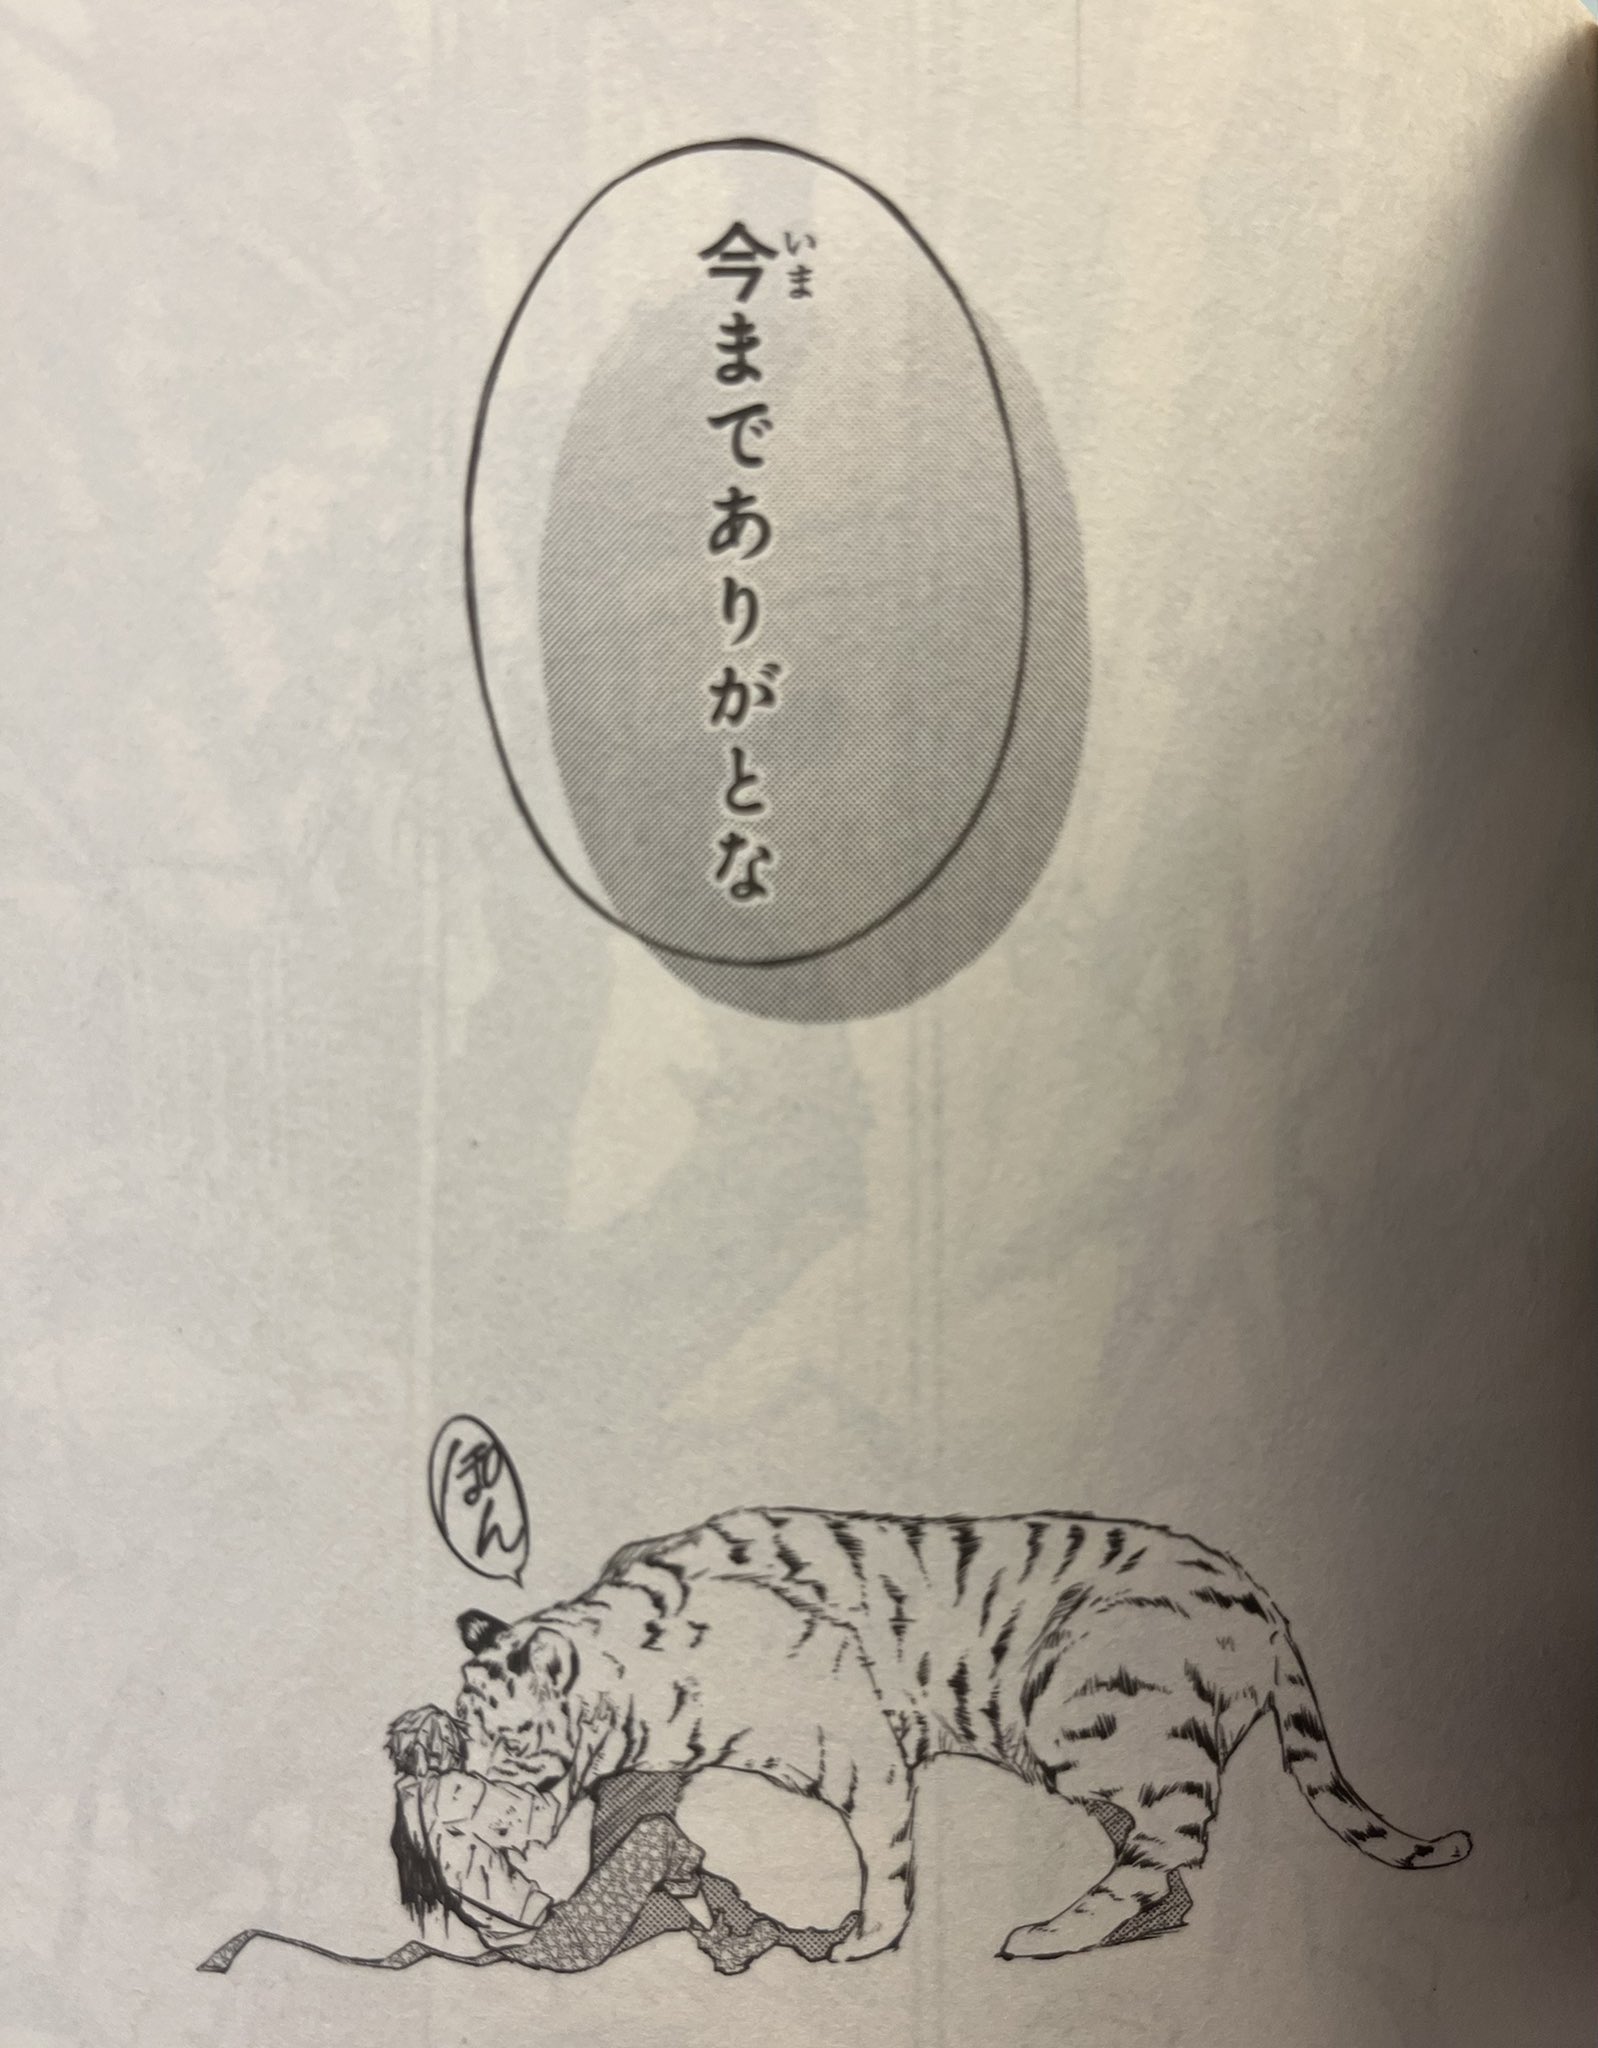 今までありがとな
いま
ぽん